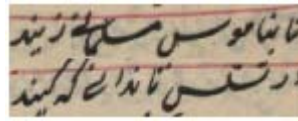 تا بناموس مسلمانی زیند
در تسلس تا ندانی که کیند